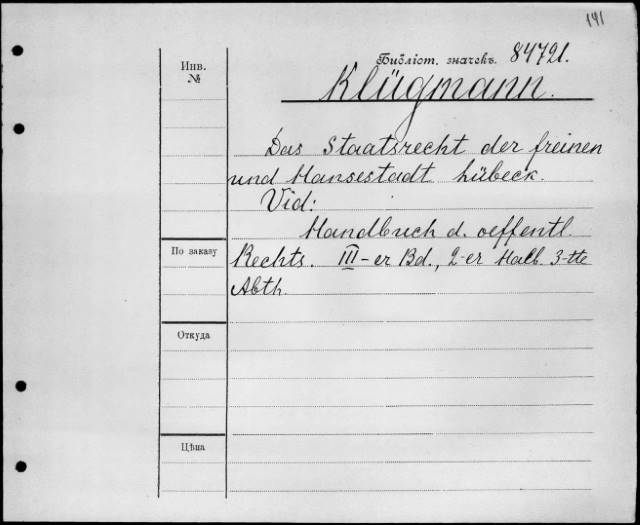 141
Библіот. значекъ. 84721.
Инв.
№
Klügmann.
Das Staatsrecht der freinen
und Hansestadt Lübeck.
Vid:
Handbuch d. oeffentl.
По заказу
Rechts. III-er Bd., 2-er Halb. 3-tte
Abth.
Откуда
Цѣна